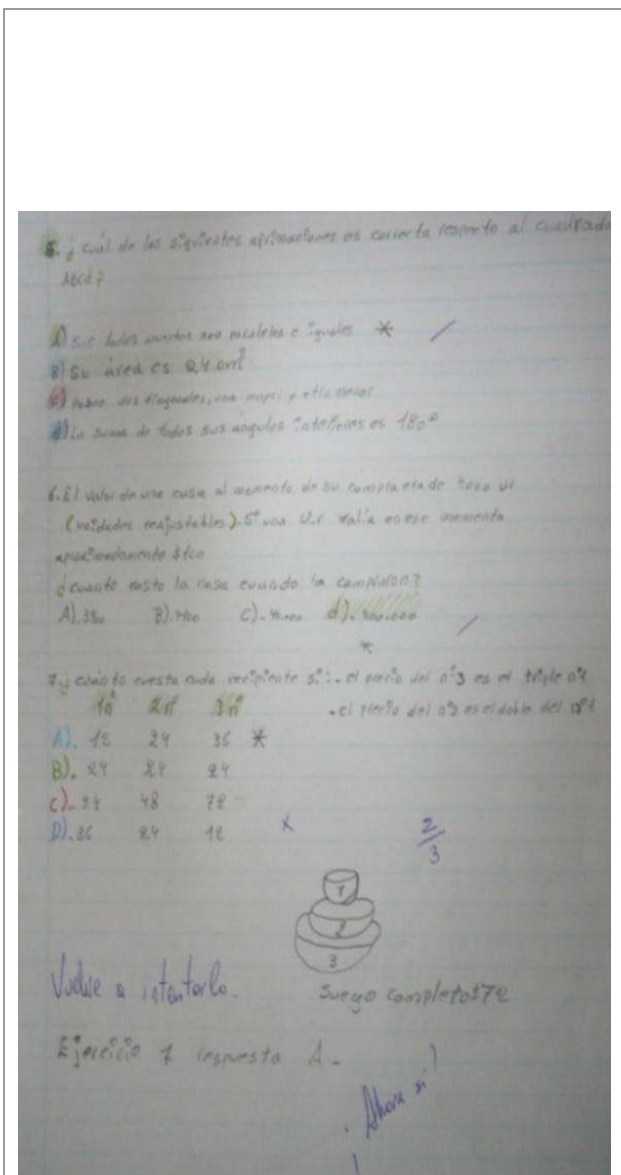 5. ¿ cuál de las siguientes afirmaciones es correcta respecto al cuadrado
Abcd?
A) Sus lados son paralelos e iguales *
B) Su área es 0,4 cm²
C) dos diagonales, una mayor y otra menor
d) La suma de todos sus angulos interiores es 180°
6. El valor de una casa al momento de su compra era de UR
(unidades reajustables). Si una U.R valía en ese momento
aproximadamente $100
¿cuanto costo la casa cuando la compraron?
A). B). C)- d)- 400.000
*
7. ¿ cuánto cuesta cada recipiente si: - el precio del nº3 es el triple nº1
1nº 2nº 3nº - el precio del nº2 es el doble del nº1
A). 12 24 36 *
B). 24 24 24
C)- 24 48 72
D)- 36 24 12 x
2/3
1
2
3
Vuelve a intentarlo. Juego completo $72
Ejercicio 7 respuesta A-
¡Ahora si!